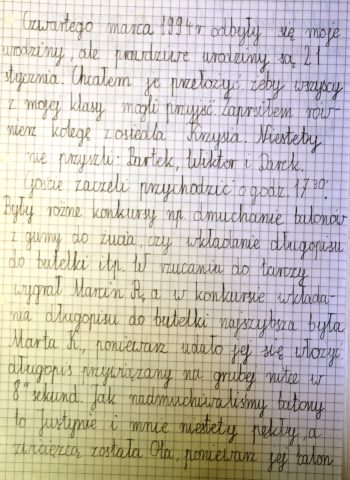 Czwartego marca 1994 r odbyły się moje
urodziny, ale prawdziwe urodziny są 21
stycznia. Chciałem je przełożyć żeby wszyscy
z mojej klasy mogli przyjść. Zaprosiłem rów-
nierz kolegę z osiedla Krzysia. Niestety
nie przyszli: Bartek, Wiktor i Darek.
Goście zaczeli przychodzić o godz. 17³⁰.
Były różne konkursy np. dmuchanie balonów
z gumy do żucia, czy wkładanie długopisu
do butelki itp. W rzucaniu do tarczy
wygrał Marcin R, a w konkursie wkłada-
nia długopisu do butelki najszybsza była
Marta K., poniewarz udało jej się włożyć
długopis przywiązany na grubej nitce w
8" sekund. Jak nadmuchiwaliśmy balony
to Justynie i mnie niestety pękły, a
zwiercą została Ola, poniewarz jej balon